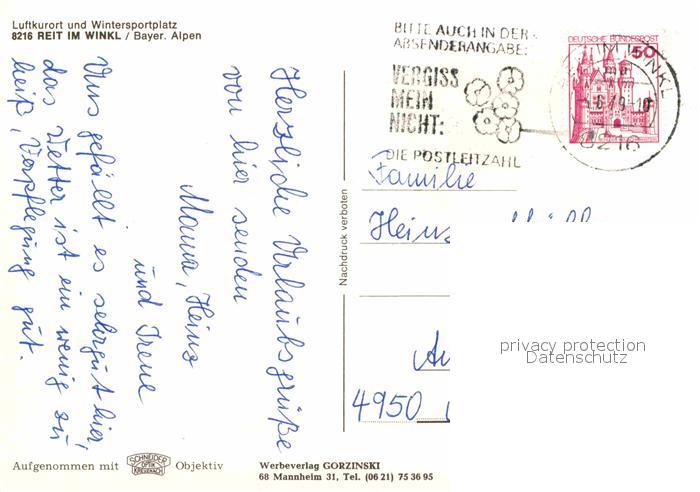 Luftkurort und Wintersportplatz
8216 REIT IM WINKL / Bayer. Alpen
BITTE AUCH IN DER
ABSENDERANGABE:
VERGISS
MEIN
NICHT:
DIE POSTLEITZAHL
DEUTSCHE BUNDESPOST
50
REIT IM WINKL
8216
Herzliche Urlaubsgrüße
von hier senden
Mama, Heinz
und Irene
Uns gefällt es sehrgut hier,
das Wetter ist ein wenig zu
heiß, Verpflegung gut.
Nachdruck verboten
Familie
Heinz
4950
privacy protection
Datenschutz
Aufgenommen mit SCHNEIDER OPTIK KREUZNACH Objektiv
Werbeverlag GORZINSKI
68 Mannheim 31, Tel. (06 21) 75 36 95